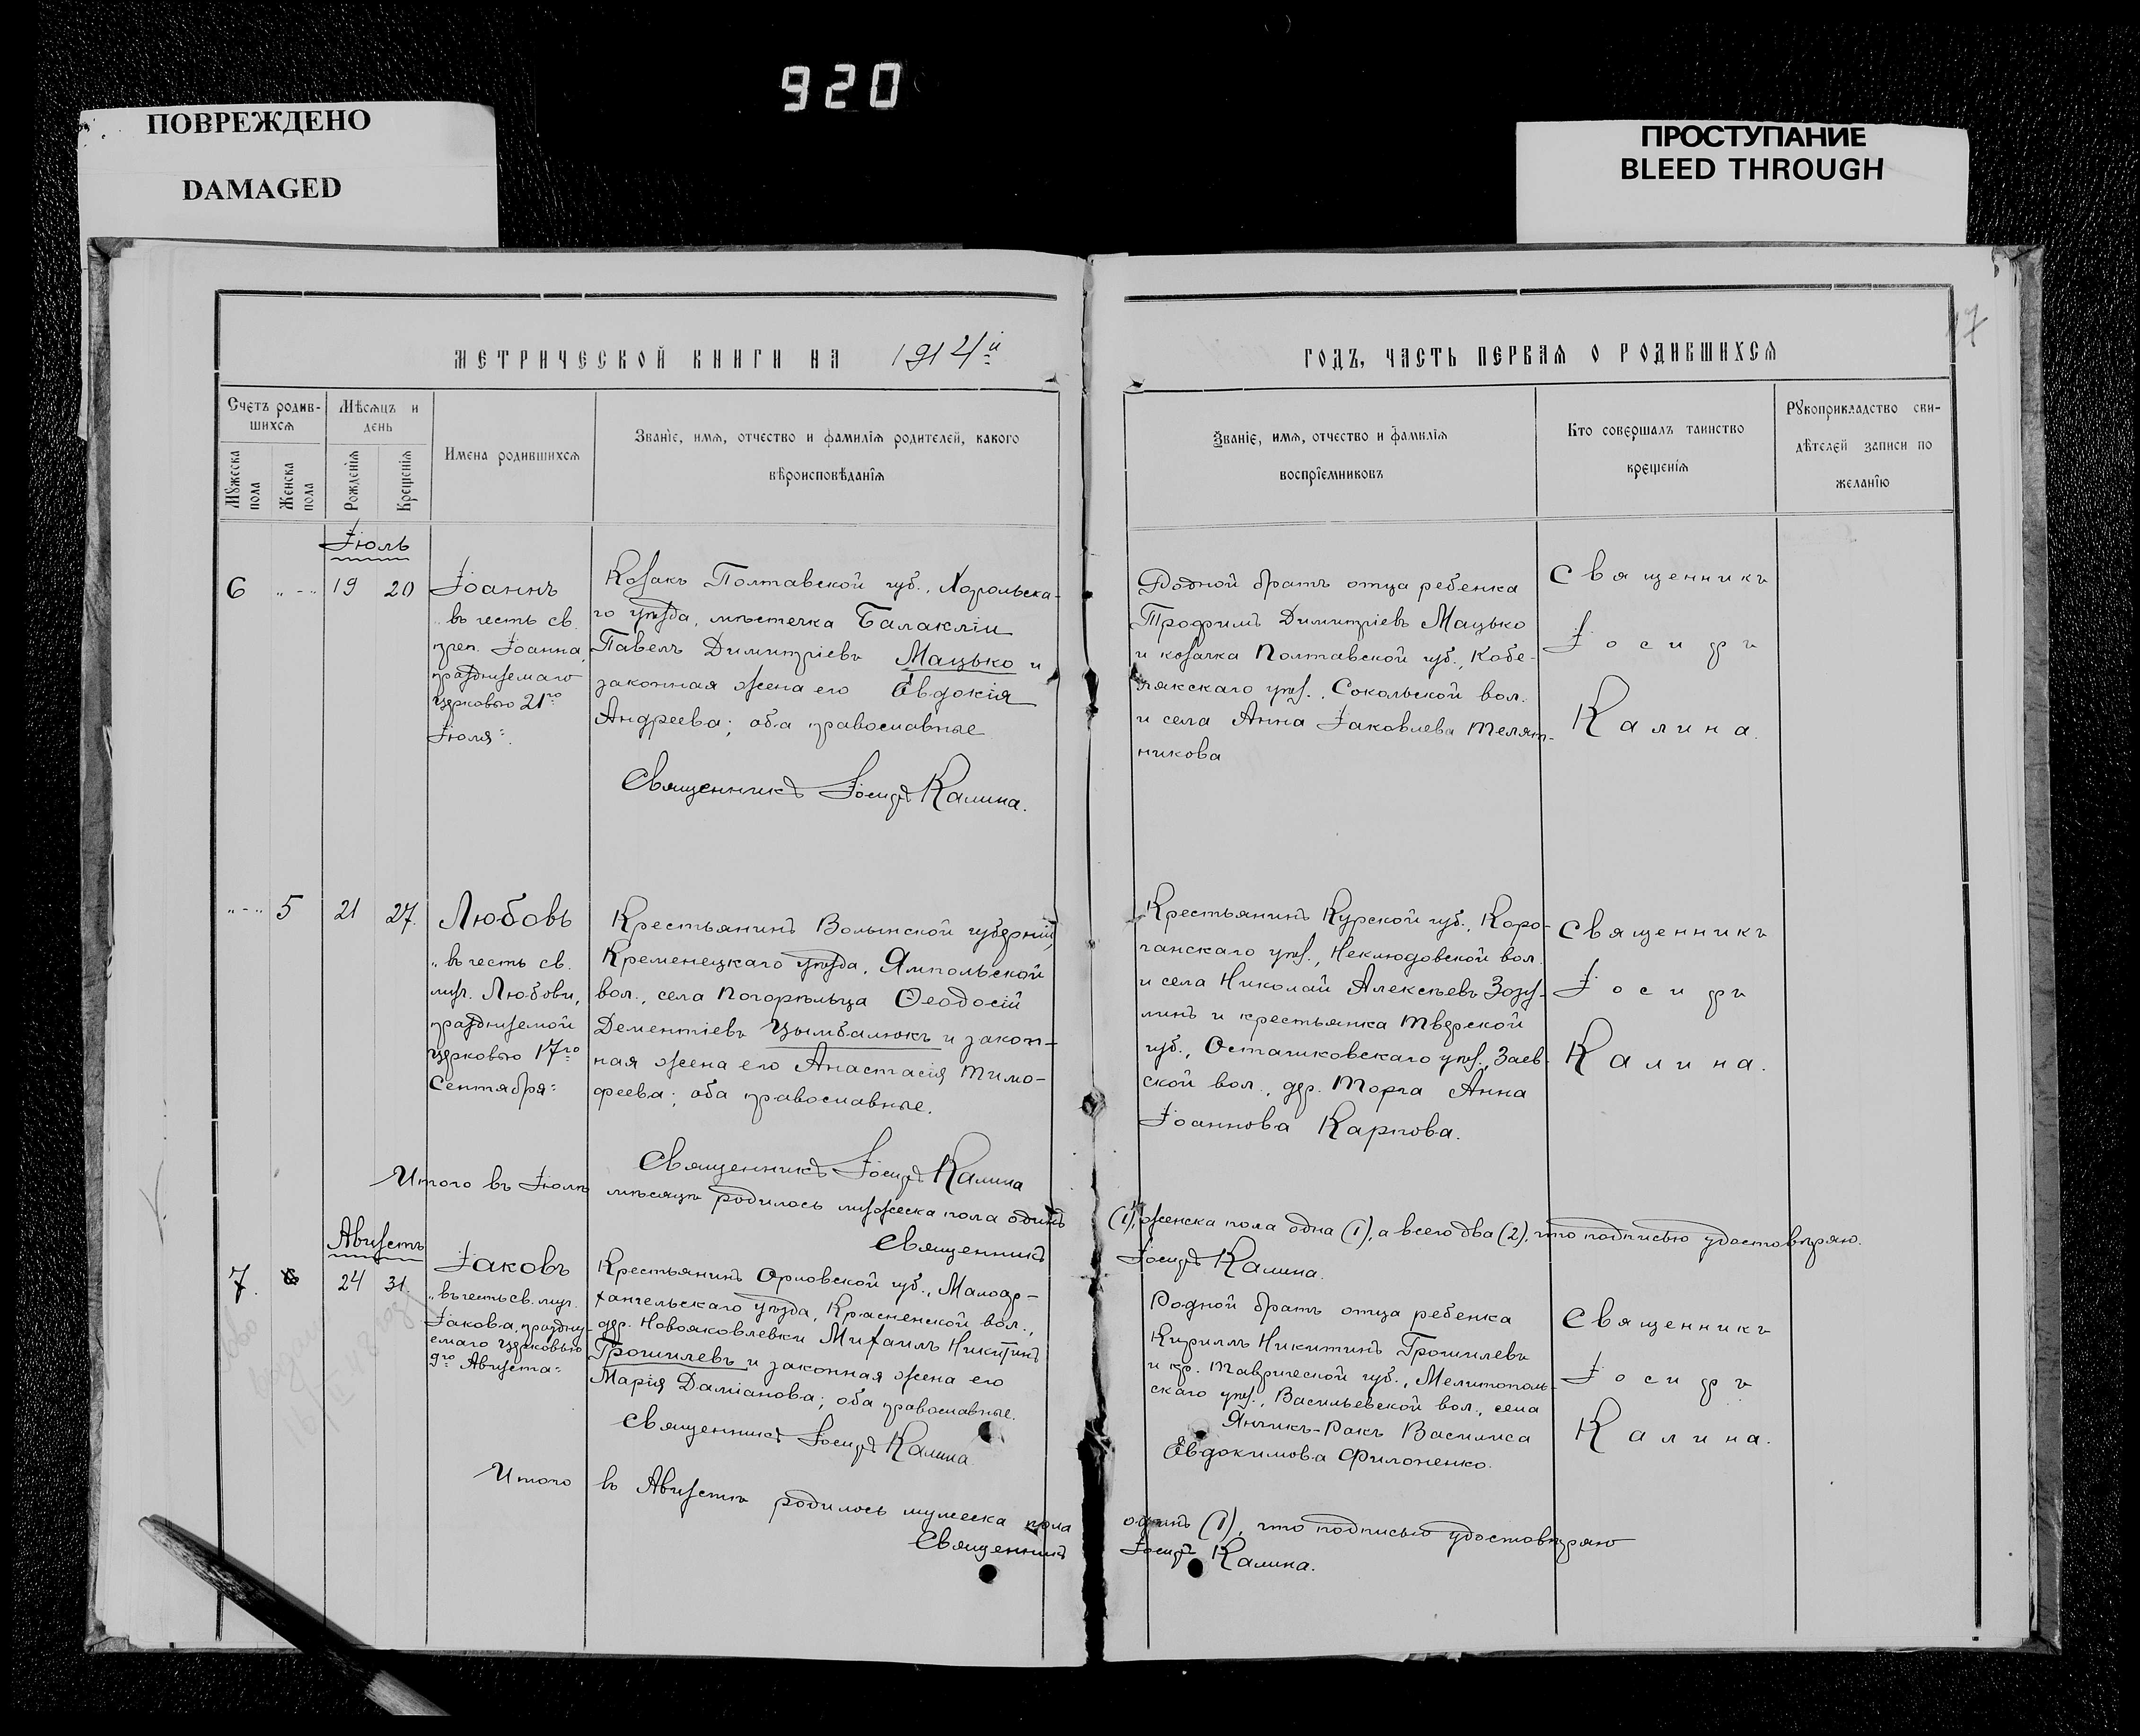 920
ПОВРЕЖДЕНО
DAMAGED
ПРОСТУПАНИЕ
BLEED THROUGH
МЕТРИЧЕСКОЙ КНИГИ НА 1914й
ГОДЪ, ЧАСТЬ ПЕРВАЯ О РОДИВШИХСЯ
17
Счетъ родив-
шихся
Мужеска
пола
Женска
пола
Мѣсяцъ и
день
Рожденія
Крещенія
Имена родившихся
Званіе, имя, отчество и фамилія родителей, какого
вѣроисповѣданія
Званіе, имя, отчество и фамилія
воспріемниковъ
Кто совершалъ таинство
крещенія
Рукоприкладство сви-
дѣтелей записи по
желанію
Іюль
6 "-" 19 20
Іоаннъ
въ честь св.
преп. Іоанна,
празднуемаго
церковью 21го
Іюля:
Козакъ Полтавской губ., Хорольска-
го уѣзда, мѣстечка Балаклiи
Павелъ Димитріевъ Мацько и
законная жена его Евдокія
Андреева; оба православные
Священникъ Іосифъ Калина.
Родной братъ отца ребенка
Трофимъ Димитріевъ Мацько
и козачка Полтавской губ., Кобе-
лякскаго уѣз., Сокольской вол.
и села Анна Іаковлева Телят-
никова
Священникъ
Іосифъ
Калина.
"-" 5 21 27.
Любовь
"въ честь св.
муч. Любови,
празднуемой
церковью 17го
Сентября:
Крестьянинъ Волынской губерніи,
Кременецкаго уѣзда, Ямпольской
вол., села Погорѣльца Ѳеодосій
Дементіевъ Цымбалюкъ и закон-
ная жена его Анастасія Тимо-
феева; оба православные.
Священникъ Іосифъ Калина
Крестьянинъ Курской губ., Коро-
чанскаго уѣз., Неклюдовской вол.
и села Николай Алексѣевъ Зозу-
линъ и крестьянка Тверской
губ., Осташковскаго уѣз., Заев-
ской вол., дер. Торга Анна
Іоаннова Карпова.
Священникъ
Іосифъ
Калина.
Итого въ Іюлѣ мѣсяцѣ родилось мужеска пола одинъ
(1), женска пола одна (1), а всего два (2), что подписью удостовѣряю.
Священникъ
Іосифъ Калина.
Августъ
7. 24 31.
Іаковъ
"въ честь св. муч.
Іакова, праздну-
емаго церковью
9го Августа:
Крестьянинъ Орловской губ., Малоар-
хангельскаго уѣзда, Красненской вол.,
дер. Новояковлевки Михаилъ Никитинъ
Грошилевъ и законная жена его
Марія Даміанова; оба православные.
Священникъ Іосифъ Калина
Родной братъ отца ребенка
Кириллъ Никитинъ Грошилевъ
и кр. Таврической губ., Мелитополь-
скаго уѣз., Васильевской вол., села
Янчикъ-Ракъ Василиса
Евдокимова Филоненко.
Священникъ
Іосифъ
Калина.
Итого въ Августѣ родилось мужеска пола
одинъ (1), что подписью удостовѣряю
Священникъ
Іосифъ Калина.